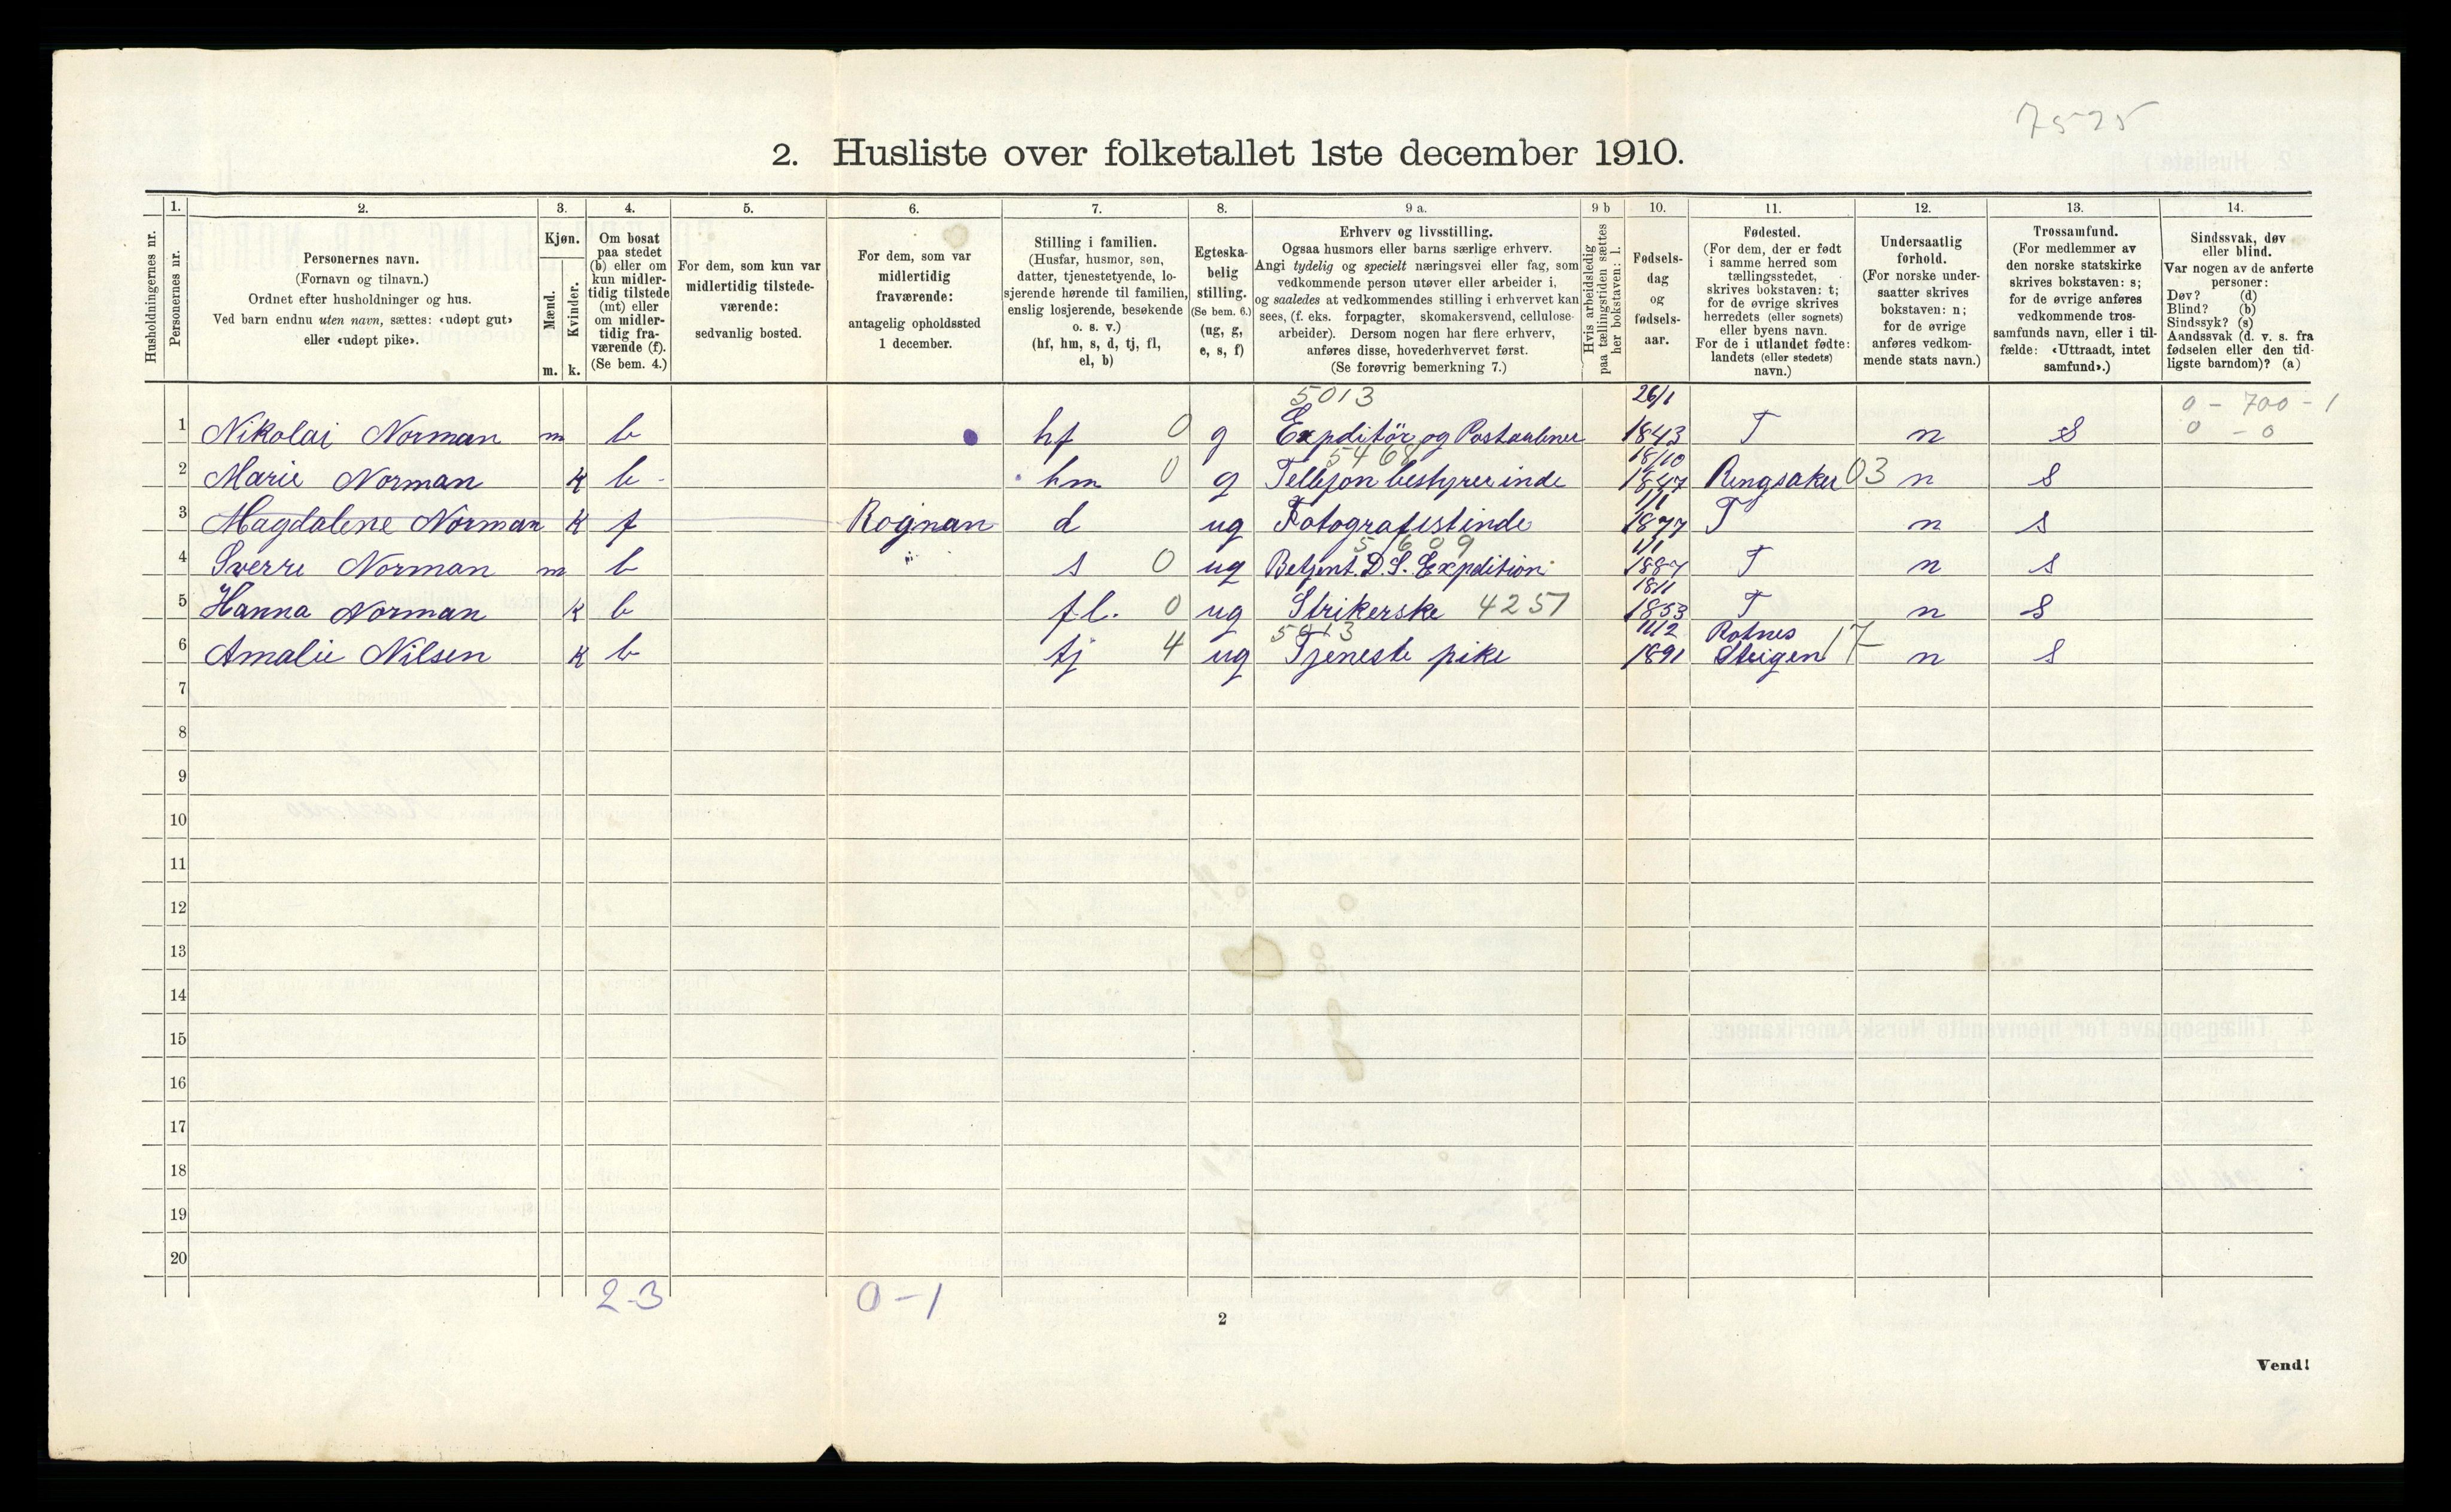 7525
2. Husliste over folketallet 1ste december 1910.
Husholdningernes nr.
1.
Personernes nr.
2.
Personernes navn.
(Fornavn og tilnavn.)
Ordnet efter husholdninger og hus.
Ved barn endnu uten navn, sættes: «udøpt gut»
eller «udøpt pike».
3.
Kjøn.
Mænd.
Kvinder.
m. k.
4.
Om bosat
paa stedet
(b) eller om
kun midler-
tidig tilstede
(mt) eller
om midler-
tidig fra-
værende (f).
(Se bem. 4.)
5.
For dem, som kun var
midlertidig tilstede-
værende:
sedvanlig bosted.
6.
For dem, som var
midlertidig
fraværende:
antagelig opholdssted
1 december.
7.
Stilling i familien.
(Husfar, husmor, søn,
datter, tjenestetyende, lo-
sjerende hørende til familien,
enslig losjerende, besøkende
o. s. v.)
(hf, hm, s, d, tj, fl,
el, b)
8.
Egteska-
belig
stilling.
(Se bem. 6.)
(ug, g,
e, s, f)
9 a.
Erhverv og livsstilling.
Ogsaa husmors eller barns særlige erhverv.
Angi tydelig og specielt næringsvei eller fag, som
vedkommende person utøver eller arbeider i,
og saaledes at vedkommendes stilling i erhvervet kan
sees, (f. eks. forpagter, skomakersvend, cellulose-
arbeider). Dersom nogen har flere erhverv,
anføres disse, hovederhvervet først.
(Se forøvrig bemerkning 7.)
9 b
Hvis arbeidsledig
paa tællingstiden sættes
her bokstaven: l.
10.
Fødsels-
dag
og
fødsels-
aar.
11.
Fødested.
(For dem, der er født
i samme herred som
tællingsstedet,
skrives bokstaven: t;
for de øvrige skrives
herredets (eller sognets)
eller byens navn.
For de i utlandet fødte:
landets (eller stedets)
navn.)
12.
Undersaatlig
forhold.
(For norske under-
saatter skrives
bokstaven: n;
for de øvrige
anføres vedkom-
mende stats navn.)
13.
Trossamfund.
(For medlemmer av
den norske statskirke
skrives bokstaven: s;
for de øvrige anføres
vedkommende tros-
samfunds navn, eller i til-
fælde: «Uttraadt, intet
samfund».)
14.
Sindssvak, døv
eller blind.
Var nogen av de anførte
personer:
Døv? (d)
Blind? (b)
Sindssyk? (s)
Aandssvak (d. v. s. fra
fødselen eller den tid-
ligste barndom)? (a)
5013 26/1 0 - 700 - 1
1 Nikolai Norman m b hf 0 g Expditör og Postaabner 1843 T n S 0 - 0
5468 18/10
2 Marie Norman K b - hm 0 g Tellefon bestyrerinde 1847 Ringsaker 03 n S
1/1
3 Magdalene Norman K f Rognan d ug Fotografistinde 1877 T n S
5609 1/1
4 Sverre Norman m b s 0 ug Betjent. D.S. Expdition 1887 T n S
18/11
5 Hanna Norman K b fl. 0 ug Strikerske 4251 1853 T n S
5013 11/2 Rotnes
6 Amalie Nilsen K b tj 4 ug Tjeneste pike 1891 Steigen 17 n S
7
8
9
10
11
12
13
14
15
16
17
18
19
20
2-3 0-1
2
Vend!